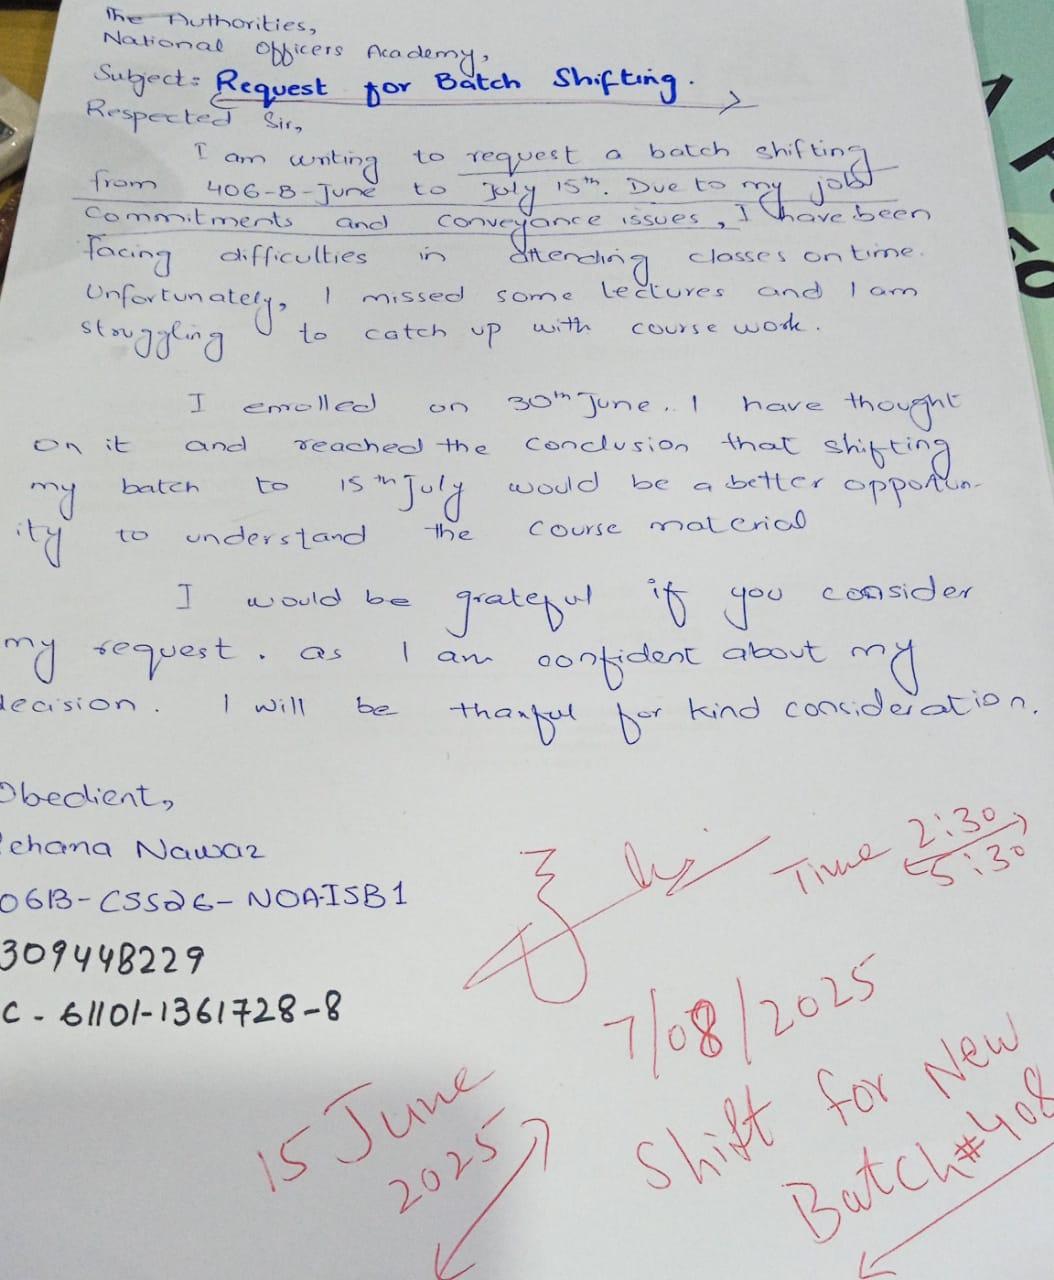 The Authorities,
National Officers Academy,
Subject: Request for Batch Shifting.
Respected Sir,
I am writing to request a batch shifting
from 406-B-June to July 15th. Due to my job
commitments and conveyance issues, I have been
facing difficulties in attending classes on time.
Unfortunately, I missed some lectures and I am
struggling to catch up with course work.
I enrolled on 30th June.. I have thought
on it and reached the conclusion that shifting
my batch to 15th July would be a better opportun-
ity to understand the course material
I would be grateful if you consider
my request. as I am confident about my
decision. I will be thanful for kind consideration.
Obedient,
ehana Nawaz
06B-CSS26-NOA-ISB1
309448229
C - 61101-1361728-8
Time 2:30
5:30
7/08/2025
15 June
2025
Shift for New
Batch#408